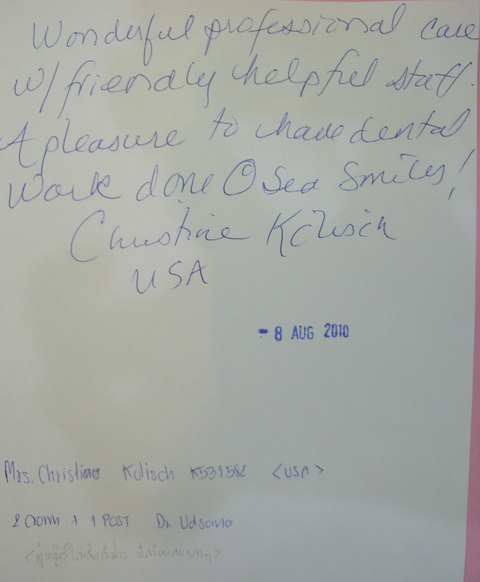 Wonderful professional care
w/ friendly helpful staff.
A pleasure to have dental
work done @ Sea Smiles!
Christine Kolisch
USA
- 8 AUG 2010
Mrs. Christine Kolisch <USA>
2 Crown + 1 POST Dr. Udsana